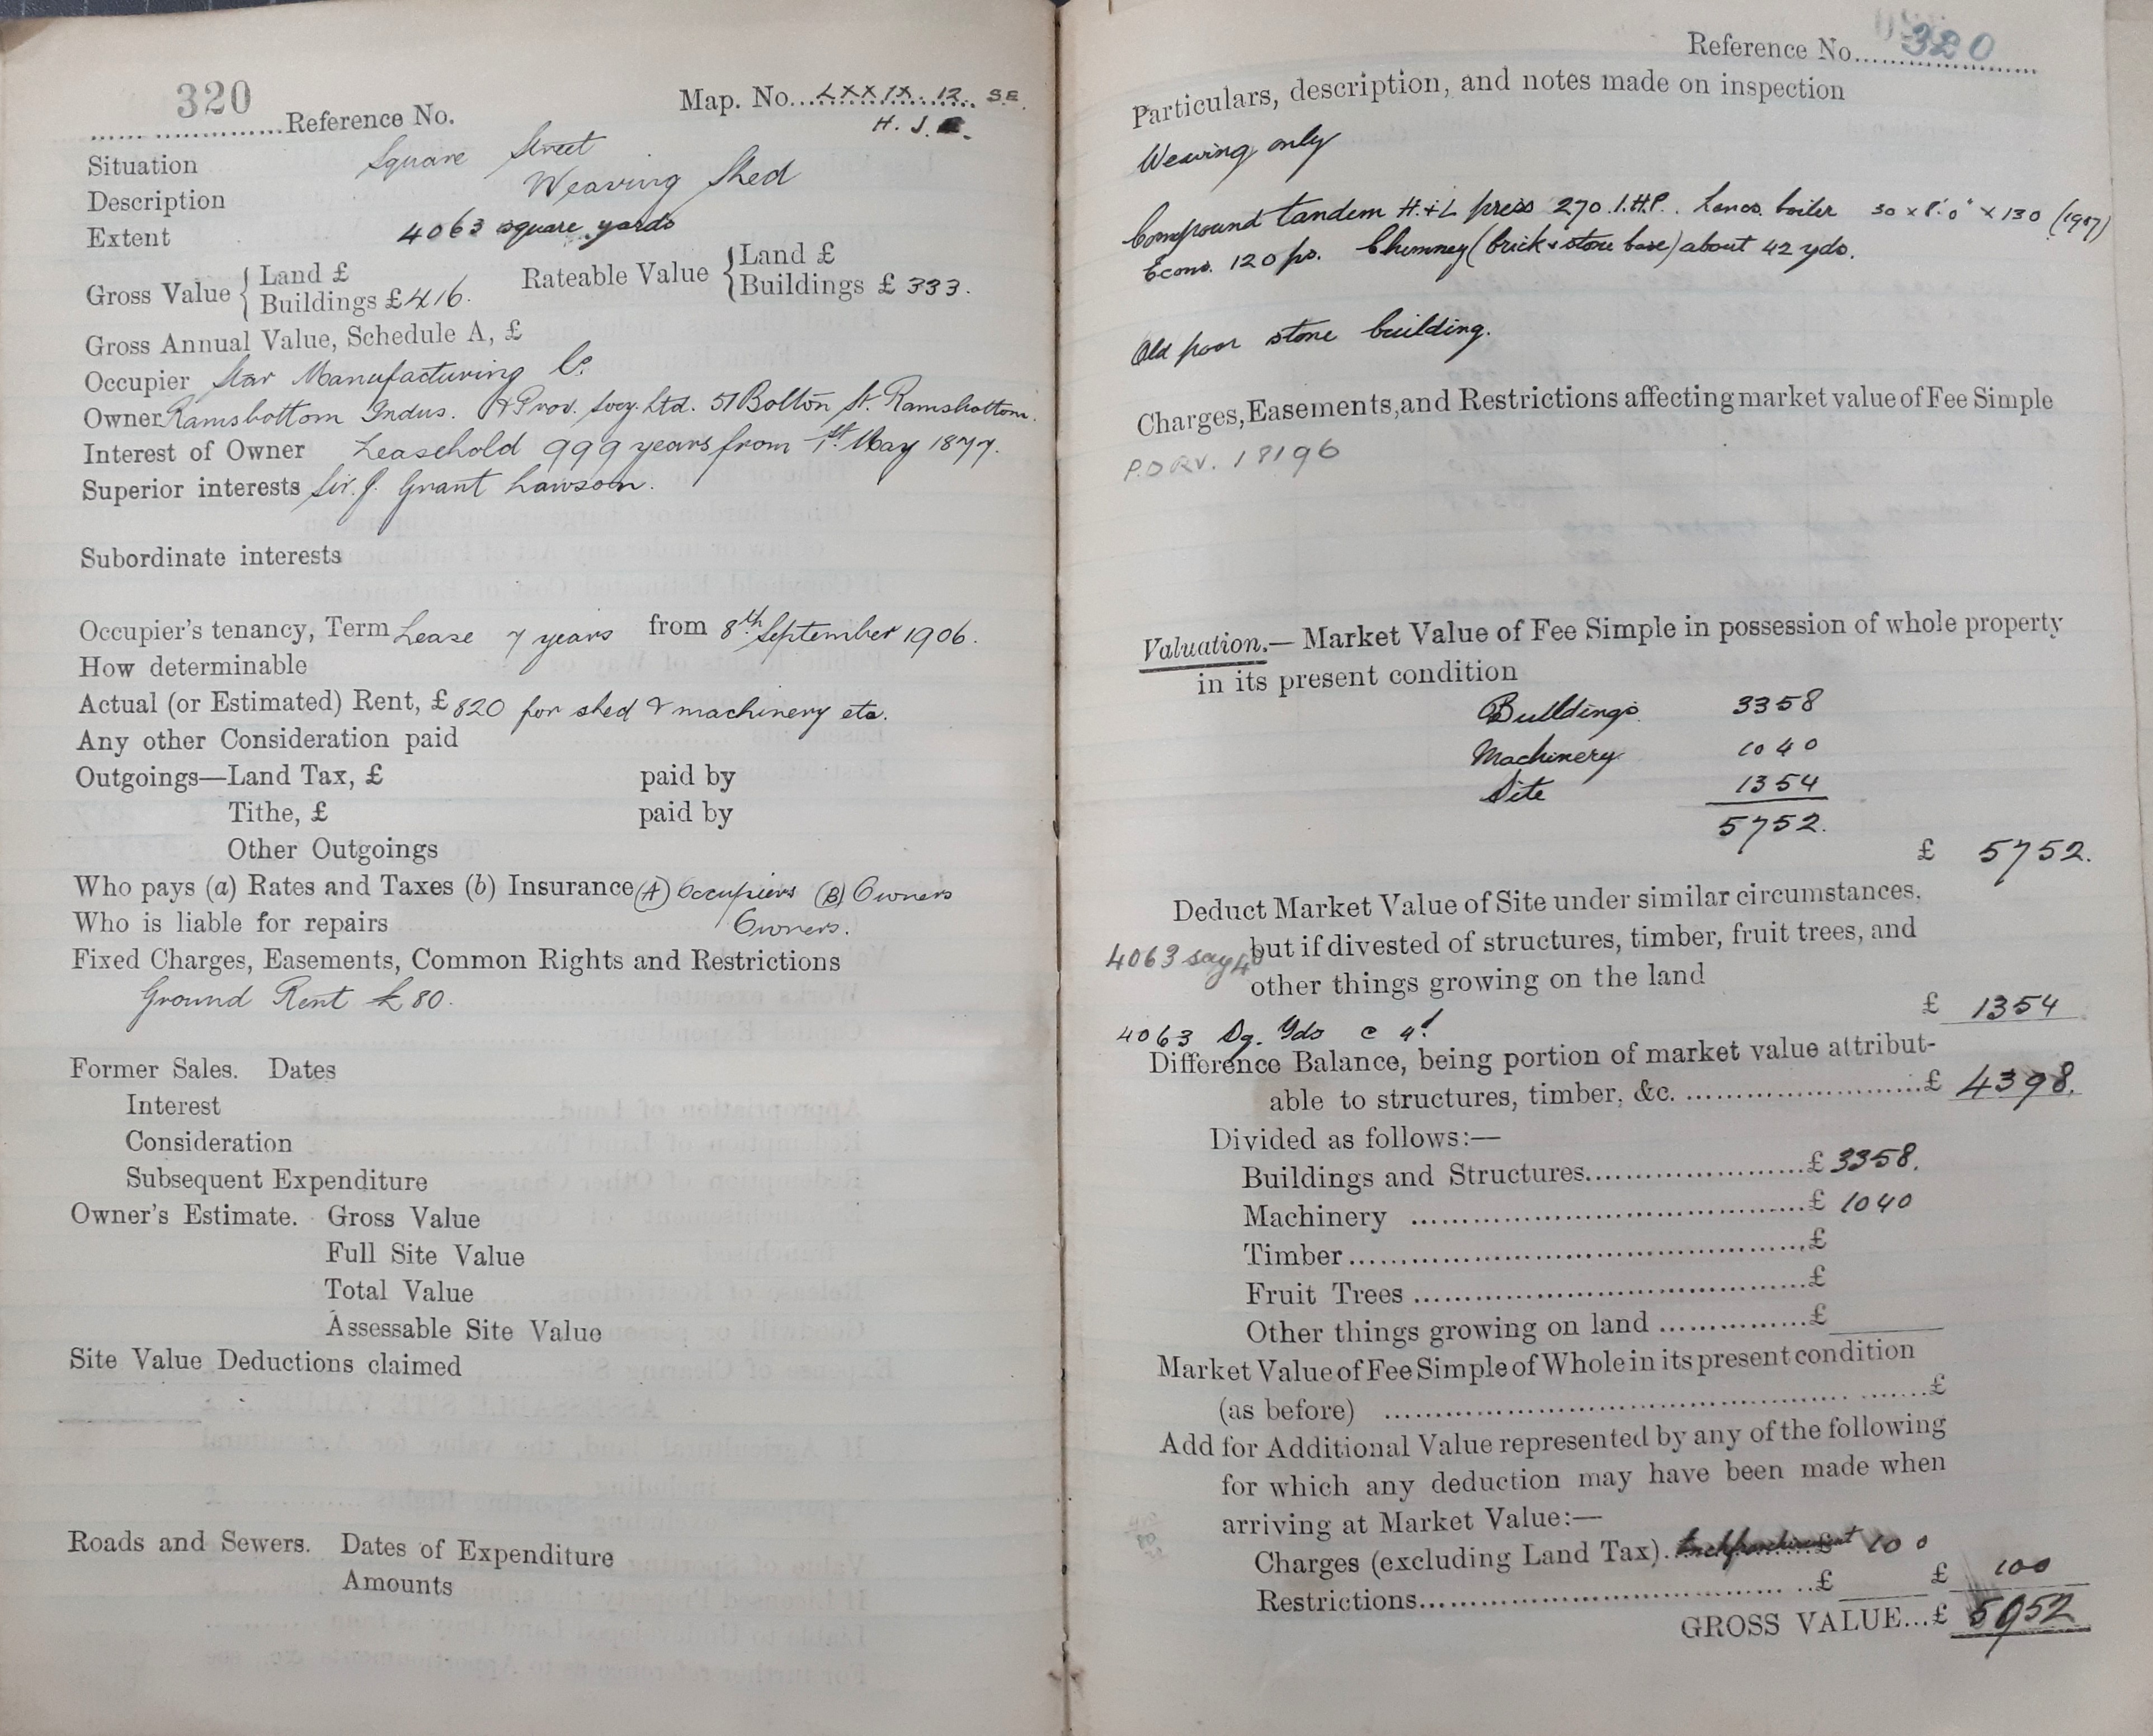 320
Reference No.
Map. No. LXXIX. 12. S.E.
H. J.
Situation Square Street
Description Weaving Shed
Extent 4063 square yards
Gross Value { Land £
Buildings £416. Rateable Value { Land £
Buildings £ 333.
Gross Annual Value, Schedule A, £
Occupier Star Manufacturing Co.
Owner Ramsbottom Indus. & Prov. Socy. Ltd. 51 Bolton St. Ramsbottom.
Interest of Owner Leasehold 999 years from 1st May 1877.
Superior interests Sir. J. Grant Lawson.
Subordinate interests
Occupier's tenancy, Term Lease 7 years from 8th September 1906.
How determinable
Actual (or Estimated) Rent, £ 820 for shed & machinery etc.
Any other Consideration paid
Outgoings—Land Tax, £ paid by
Tithe, £ paid by
Other Outgoings
Who pays (a) Rates and Taxes (b) Insurance (A) Occupiers (B) Owners
Who is liable for repairs Owners.
Fixed Charges, Easements, Common Rights and Restrictions
Ground Rent £80.
Former Sales. Dates
Interest
Consideration
Subsequent Expenditure
Owner's Estimate. Gross Value
Full Site Value
Total Value
Assessable Site Value
Site Value Deductions claimed
Roads and Sewers. Dates of Expenditure
Amounts
Reference No. 320
Particulars, description, and notes made on inspection
Weaving only
Compound tandem H. & L press 270 I.H.P. Lancs. boiler 30 x 8'.0" x 130 (1907)
Econo. 120 ps. Chimney (brick & stone base) about 42 yds.
Old poor stone building.
Charges, Easements, and Restrictions affecting market value of Fee Simple
P.O RV. 18196
Valuation.—Market Value of Fee Simple in possession of whole property
in its present condition
Buildings 3358
Machinery 1040
Site 1354
5752.
£ 5752.
Deduct Market Value of Site under similar circumstances,
4063 say 4d but if divested of structures, timber, fruit trees, and
other things growing on the land
£ 1354
4063 Sq. Yds @ 4d
Difference Balance, being portion of market value attribut-
able to structures, timber, &c. £ 4398.
Divided as follows:—
Buildings and Structures £ 3358.
Machinery £ 1040
Timber £
Fruit Trees £
Other things growing on land £
Market Value of Fee Simple of Whole in its present condition
(as before) £
Add for Additional Value represented by any of the following
for which any deduction may have been made when
arriving at Market Value:—
Charges (excluding Land Tax) £ 100
Restrictions £ £ 100
GROSS VALUE...£ 5952